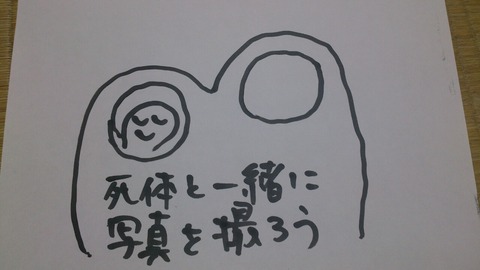 死体と一緒に
写真を撮ろう